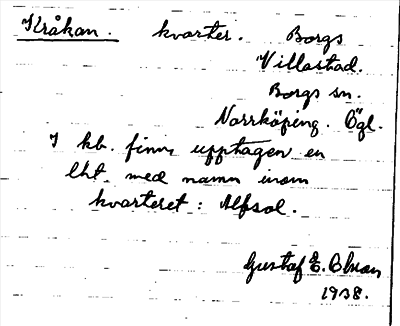 Kråkan. kvarter. Borgs
Villastad.
Borgs sn.
Norrköping. Ögl.
I kb. finns upptagen en
lht. med namn inom
kvarteret: Alfsol.
Gustaf E.
1938.